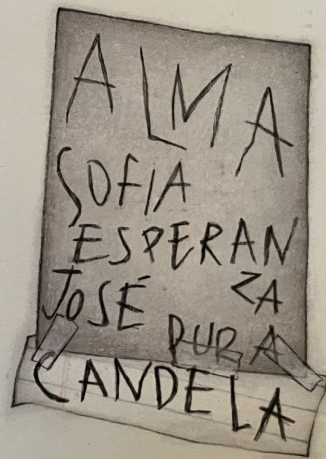 ALMA
SOFIA
ESPERAN
ZA
JOSÉ
PURA
CANDELA